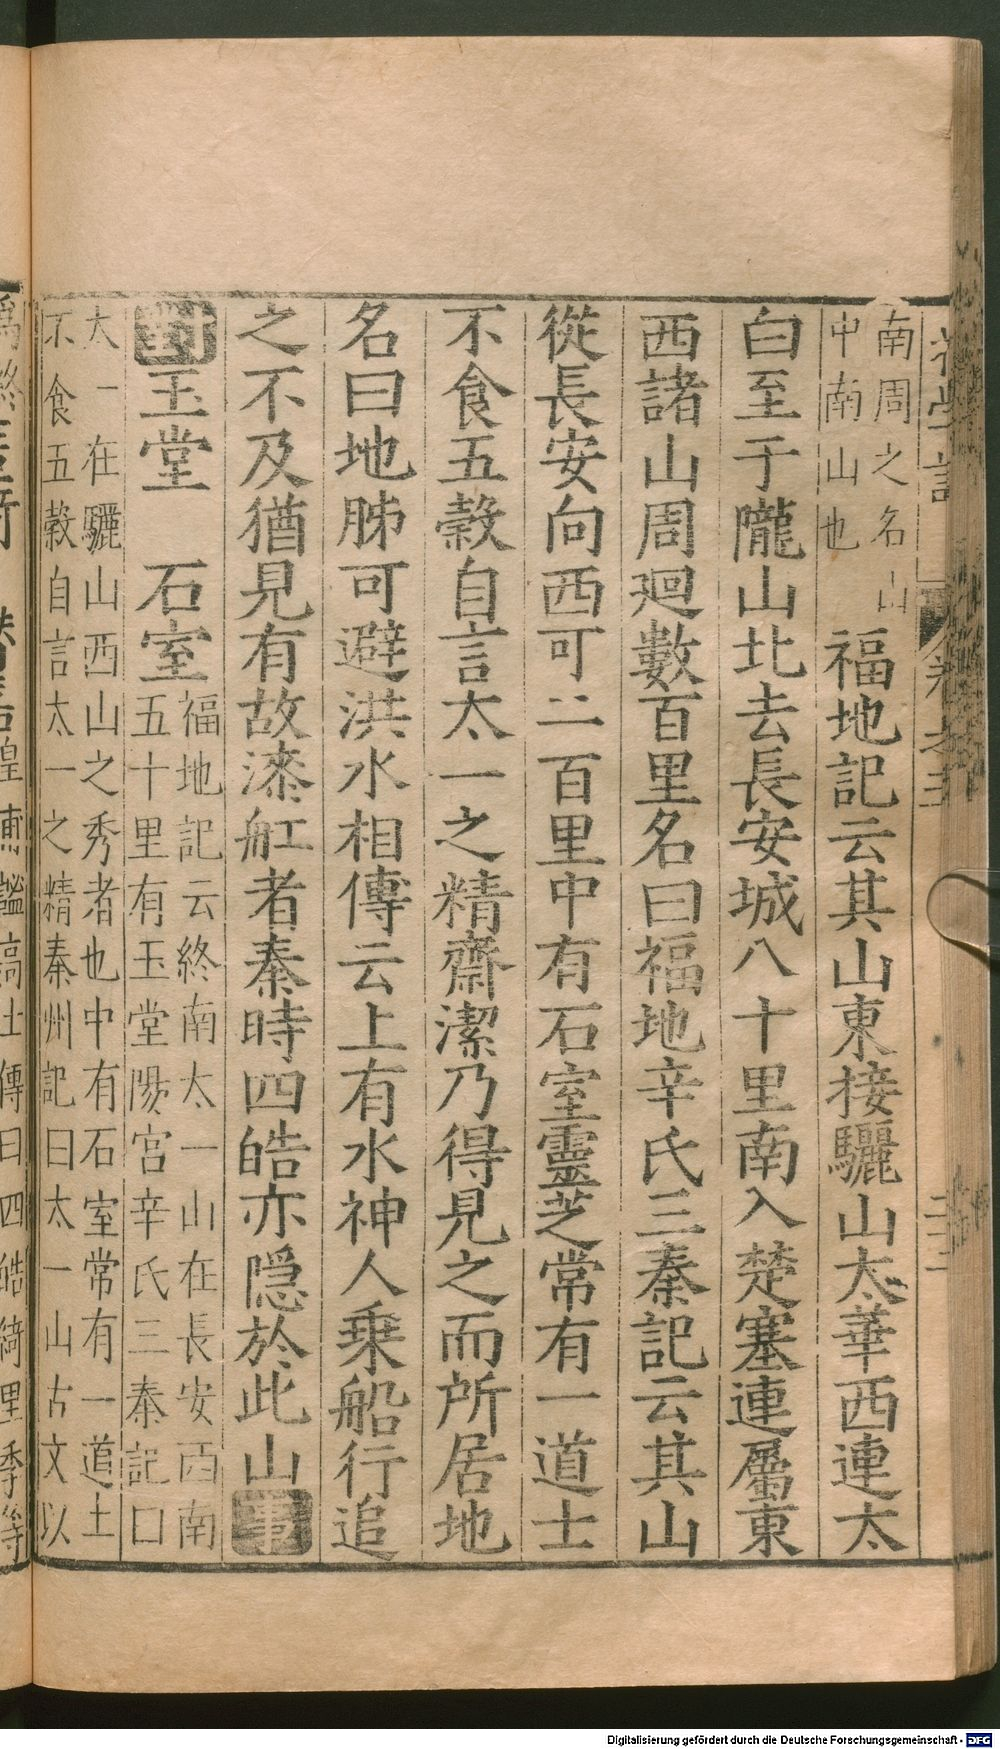 南周之名山
中南山也
福地記云其山東接驪山太華西連太
白至于隴山北去長安城八十里南入楚塞連屬東
西諸山周廻數百里名曰福地辛氏三秦記云其山
從長安向西可二百里中有石室靈芝常有一道士
不食五穀自言太一之精齋潔乃得見之而所居地
名曰地肺可避洪水相傳云上有水神人乗船行追
之不及猶見有故漆舡者秦時四皓亦隱於此山事
對玉堂 石室
福地記云終南太一山在長安西南
五十里有玉堂陽宮辛氏三秦記曰
太一在驪山西山之秀者也中有石室常有一道士
不食五穀自言太一之精秦州記曰太一山古文以
Digitalisierung gefördert durch die Deutsche Forschungsgemeinschaft - DFG